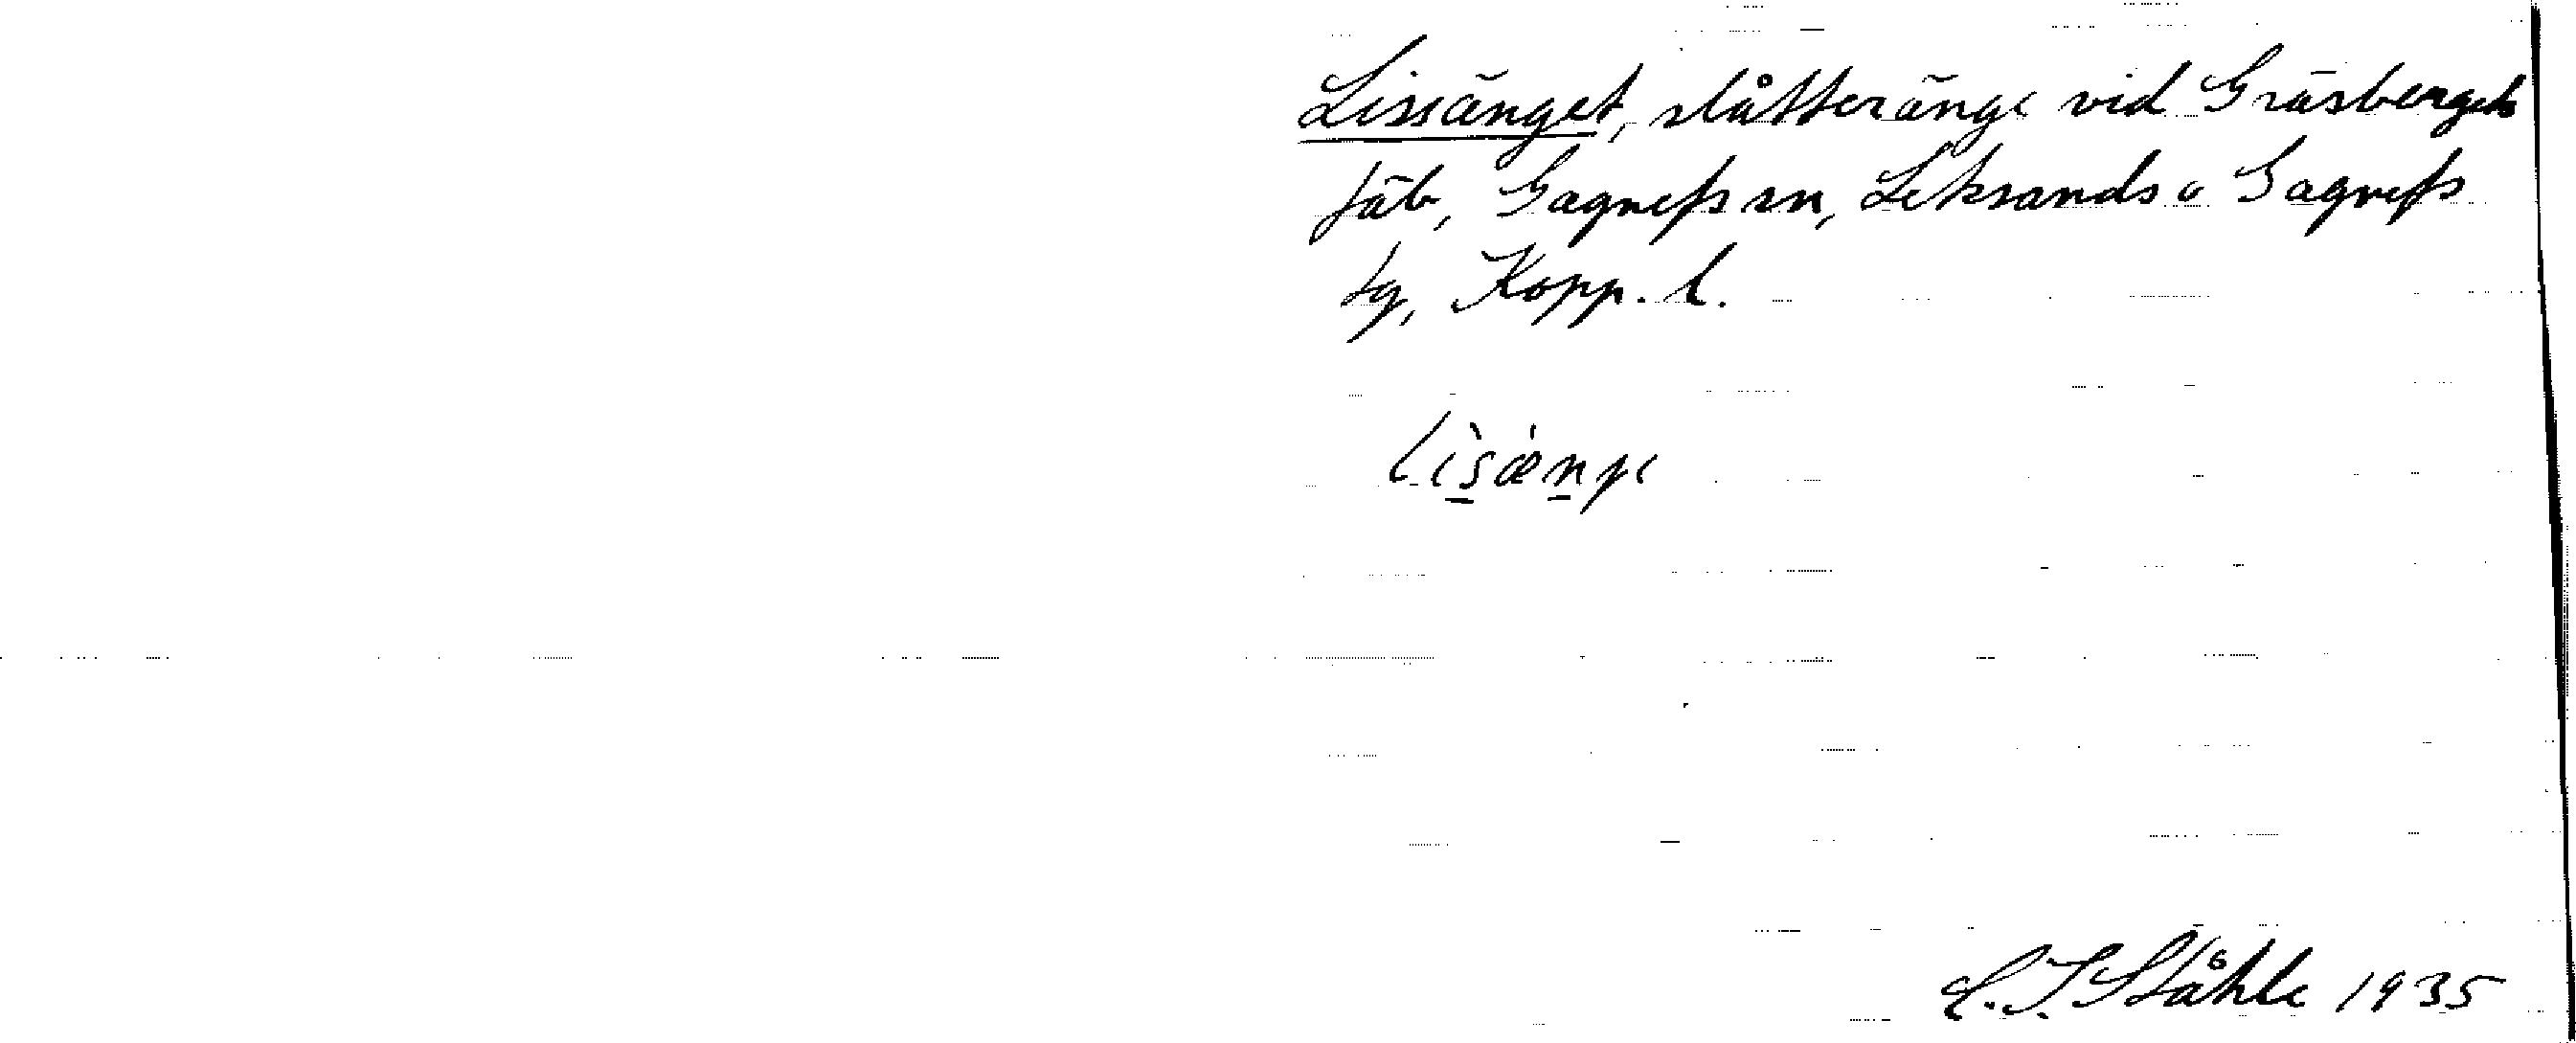 Lissänget, slåtteränge vid Gräsbergets
fäb, Gagnefs sn, Leksands o Gagnefs
tg, Kopp. l.
lìsæ̀nɟe
C. I. Ståhle 1935